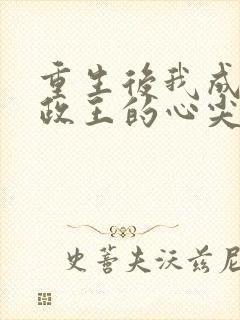 重生後我成
政王的心尖
史蒂夫沃兹尼